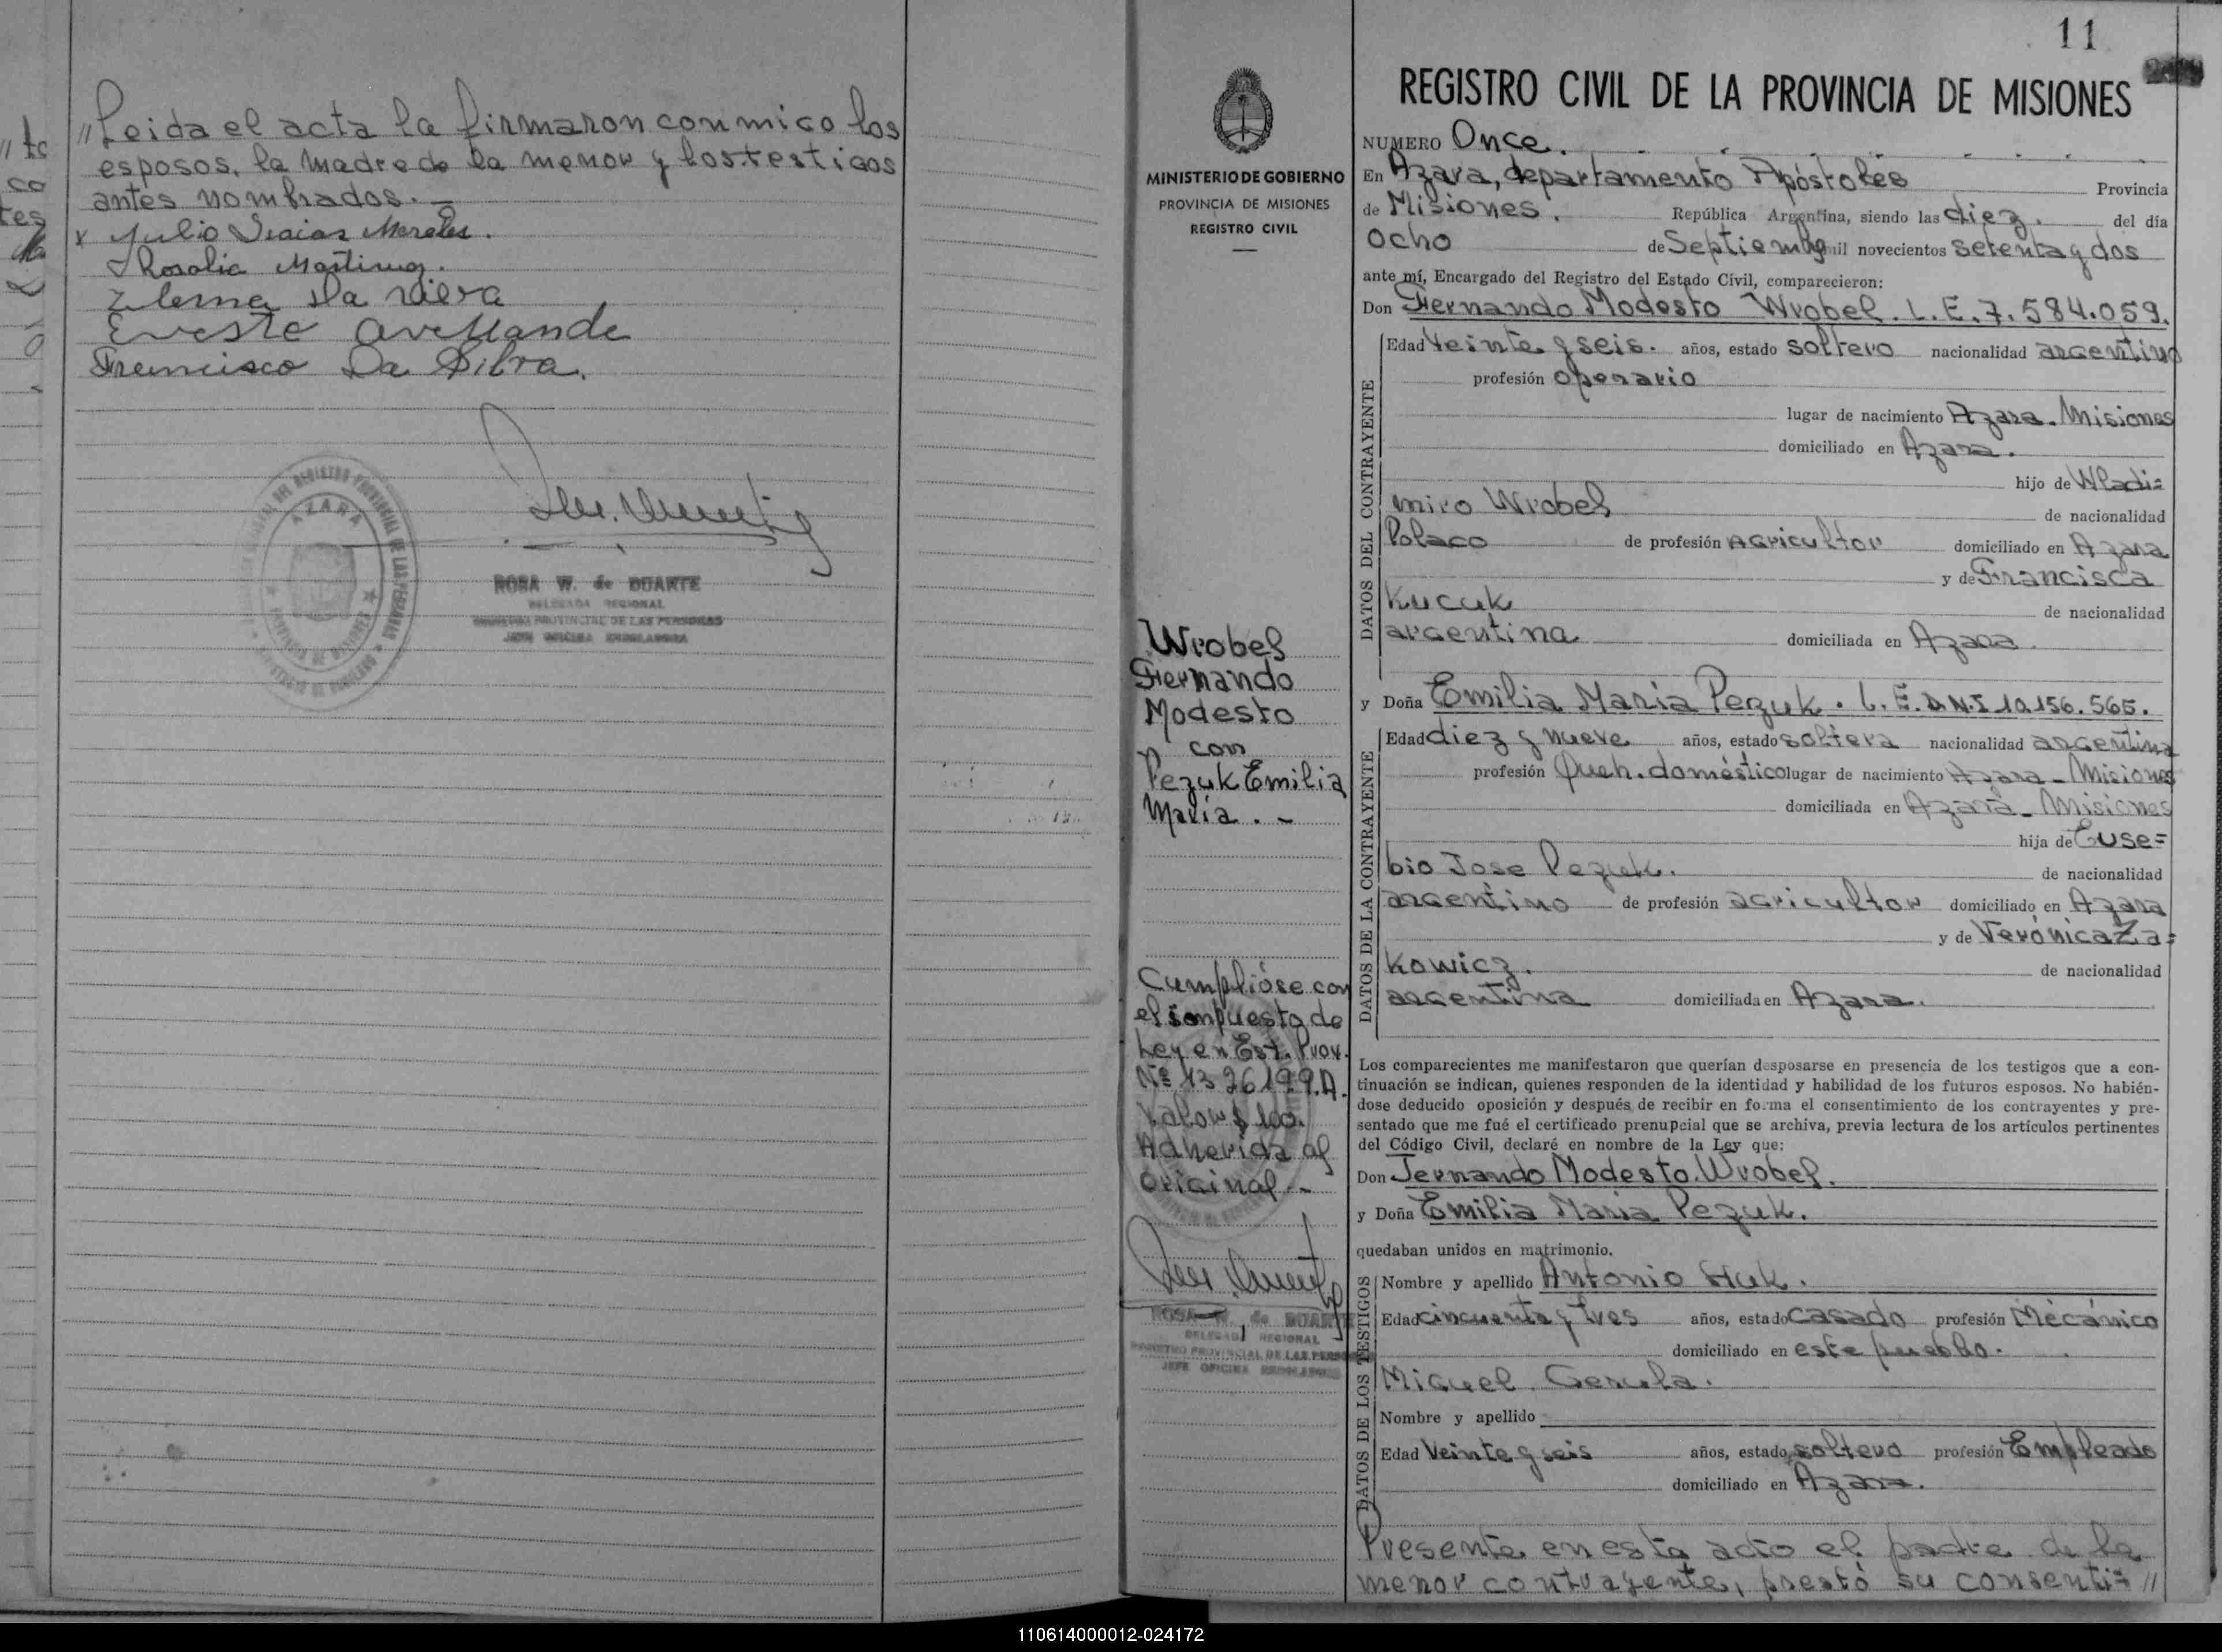 "Leida el acta la firmaron conmigo los
esposos, la madre de la menor y los testigos
antes nombrados.-
x Julio Isaias Mereles.
Rosalia Martinez.
Zlema Da
Eveste Avellande
Francisco Da Silva.
AZARA
ROSA W. de DUARTE
DELEGADA REGIONAL
REGISTRO PROVINCIAL DE LAS PERSONAS
JEFE OFICINA
MINISTERIO DE GOBIERNO
PROVINCIA DE MISIONES
REGISTRO CIVIL
Wrobel
Fernando
Modesto
con
Pezuk Emilia
María.-
Cumplióse con
el impuesto de
Ley en Est. Prov.
Nº 1326199.A.
Valor $ 100.
Adherida al
original.-
ROSA W. de DUARTE
DELEGADA REGIONAL
REGISTRO PROVINCIAL DE LAS PERSONAS
JEFE OFICINA
11
REGISTRO CIVIL DE LA PROVINCIA DE MISIONES
NUMERO Once.
En Azara, departamento Apóstoles Provincia
de Misiones. República Argentina, siendo las diez. del día
Ocho de Septiembre mil novecientos setenta y dos
ante mí, Encargado del Registro del Estado Civil, comparecieron:
Don Fernando Modesto Wrobel. L.E. 7.584.059.
DATOS DEL CONTRAYENTE
Edad Veinte y seis. años, estado soltero nacionalidad argentino
profesión operario
lugar de nacimiento Azara. Misiones
domiciliado en Azara.
hijo de Wladi=
miro Wrobel
de nacionalidad
Polaco de profesión Agricultor domiciliado en Azara
y de Francisca
Kucuk
de nacionalidad
argentina domiciliada en Azara.
y Doña Emilia María Pezuk. L.E. D.N.I 10.156.565.
DATOS DE LA CONTRAYENTE
Edad diez y nueve años, estado soltera nacionalidad argentina
profesión Queh. doméstico lugar de nacimiento Azara - Misiones
domiciliada en Azara - Misiones
hija de Euse=
bio Jose Pezuk.
de nacionalidad
argentino de profesión agricultor domiciliado en Azara
y de Verónica Za=
kowicz.
de nacionalidad
argentina domiciliada en Azara.
Los comparecientes me manifestaron que querían desposarse en presencia de los testigos que a con-
tinuación se indican, quienes responden de la identidad y habilidad de los futuros esposos. No habién-
dose deducido oposición y después de recibir en forma el consentimiento de los contrayentes y pre-
sentado que me fué el certificado prenupcial que se archiva, previa lectura de los artículos pertinentes
del Código Civil, declaré en nombre de la Ley que:
Don Fernando Modesto Wrobel.
y Doña Emilia María Pezuk.
quedaban unidos en matrimonio.
DATOS DE LOS TESTIGOS
Nombre y apellido Antonio Huk.
Edad cincuenta y tres años, estado casado profesión Mecánico
domiciliado en este pueblo.
Miguel Gerula.
Nombre y apellido
Edad Veinte y seis años, estado soltero profesión Empleado
domiciliado en Azara.
Presente en este acto el padre de la
menor contrayente, prestó su consenti= //
110614000012-024172